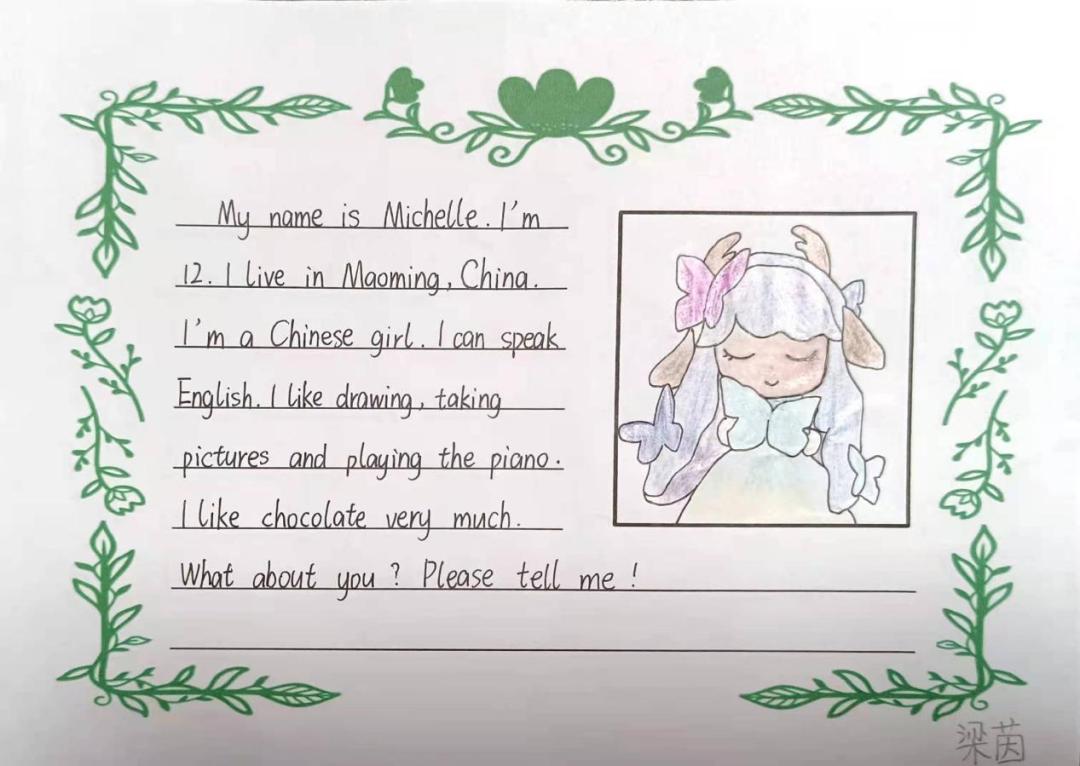 My name is Michelle. I'm
12. I live in Maoming, China.
I'm a Chinese girl. I can speak
English. I like drawing, taking
pictures and playing the piano.
I like chocolate very much.
What about you? Please tell me!
梁茵